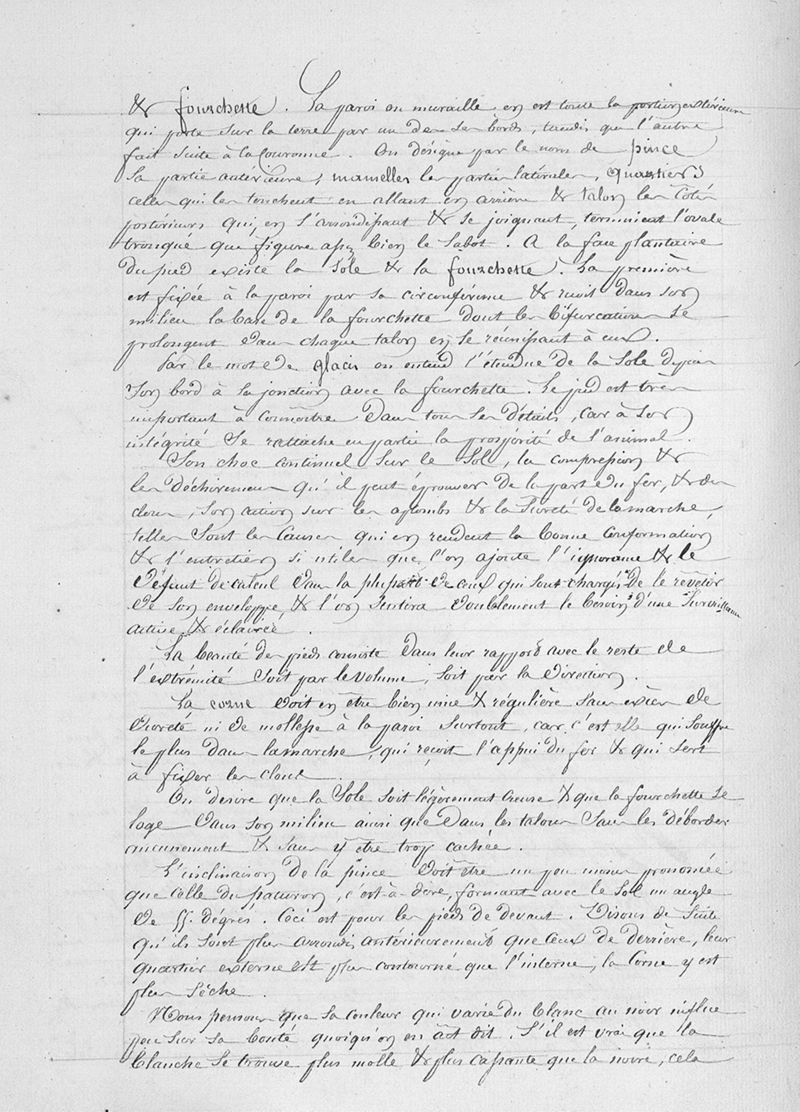 & fourchette. La paroi ou muraille en est toute la portion extérieure
qui porte sur la terre par un de ses bords, tandis que l'autre
fait suite à la Couronne. On désigne par le nom de pince
sa partie antérieure, mamelles les parties latérales, quartiers
celles qui les touchent en allant en arrière & talons les côtés
postérieurs qui, en s'arrondissant & se joignant, terminent l'ovale
tronqué que figure assez bien le Sabot. A la face plantaire
du pied existe la Sole & la fourchette. La première
est fixée à la paroi par sa circonférence & reçoit dans son
milieu la base de la fourchette dont les bifurcations se
prolongent dans chaque talon en se réunissant à eux.
Par le mot de glacis on entend l'étendue de la Sole depuis
son bord à sa jonction avec la fourchette. Le pied est très
important à connoître dans tous ses détails, car à son
intégrité se rattache en partie la prospérité de l'animal.
Son choc continuel sur le Sol, la compression &
les déchiremens qu'il peut éprouver de la part du fer, & des
clous, son action sur les aplombs & la Sureté de la marche,
telles sont les causes qui en rendent la bonne conformation
& l'entretien si utiles que l'on ajoute l'ignorance & le
défaut de calcul dans la plupart de ceux qui sont chargés de le revêtir
de son enveloppe, & l'on sentira doublement le besoin d'une Surveillance
active & éclairée.
La beauté des pieds consiste dans leur rapport avec le reste de
l'extrémité soit par le volume, soit par la direction.
La corne doit en être bien unie & régulière sans excès de
dureté ni de mollesse à la paroi surtout, car c'est elle qui souffre
le plus dans la marche, qui reçoit l'appui du fer & qui sert
à fixer les clous.
On désire que la Sole soit légèrement creuse & que la fourchette se
loge dans son milieu ainsi que dans les talons sans les déborder
aucunement & sans y être trop cachée.
L'inclinaison de la pince doit être un peu moins prononcée
que celle du paturon, c'est-à-dire, formant avec le sol un angle
de 55 dégrés. Ceci est pour les pieds de devant. Disons de suite
qu'ils sont plus arrondis antérieurement que ceux de derrière, leur
quartier externe est plus contourné que l'interne, la Corne y est
plus sèche.
Nous pensons que sa couleur qui varie du blanc au noir influe
peu sur sa bonté quoiqu'on en ait dit. S'il est vrai que la
blanche se trouve plus molle & plus cassante que la noire, cela